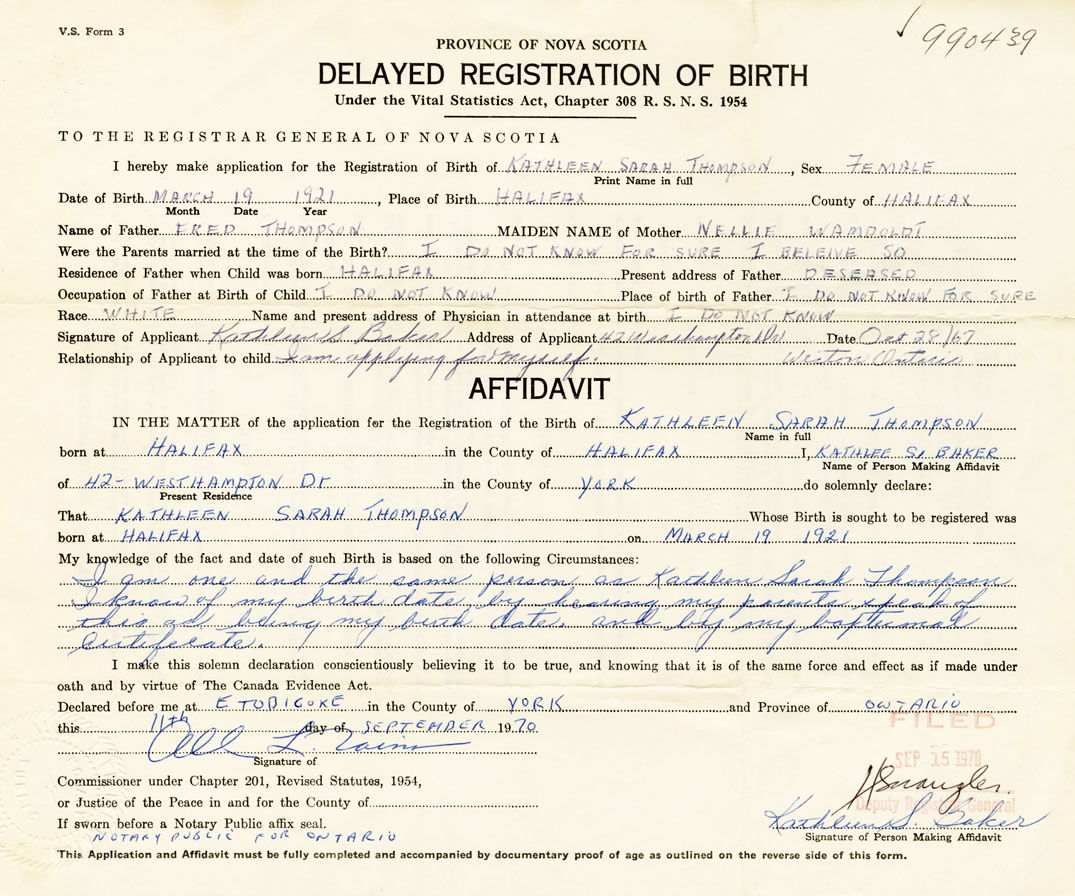 V.S. Form 3
990439
PROVINCE OF NOVA SCOTIA
DELAYED REGISTRATION OF BIRTH
Under the Vital Statistics Act, Chapter 308 R. S. N. S. 1954
TO THE REGISTRAR GENERAL OF NOVA SCOTIA
I hereby make application for the Registration of Birth of KATHLEEN SARAH THOMPSON, Sex FEMALE
Print Name in full
Date of Birth MARCH 19 1921, Place of Birth HALIFAX County of HALIFAX
Month Date Year
Name of Father FRED THOMPSON MAIDEN NAME of Mother NELLIE WAMBOLDT
Were the Parents married at the time of the Birth? I DO NOT KNOW FOR SURE I BELEIVE SO
Residence of Father when Child was born HALIFAX Present address of Father DESEASED
Occupation of Father at Birth of Child I DO NOT KNOW Place of birth of Father I DO NOT KNOW FOR SURE
Race WHITE Name and present address of Physician in attendance at birth I DO NOT KNOW
Signature of Applicant Kathleen S Baker Address of Applicant 42 Westhampton Dr Date Oct 28/67
Relationship of Applicant to child I am applying for myself. Weston Ontario
AFFIDAVIT
IN THE MATTER of the application for the Registration of the Birth of KATHLEEN SARAH THOMPSON
Name in full
born at HALIFAX in the County of HALIFAX I, KATHLEE S. BAKER
Name of Person Making Affidavit
of 42- WESTHAMPTON Dr in the County of YORK do solemnly declare:
Present Residence
That KATHLEEN SARAH THOMPSON Whose Birth is sought to be registered was
born at HALIFAX on MARCH 19 1921
My knowledge of the fact and date of such Birth is based on the following Circumstances:
I am one and the same person as Kathleen Sarah Thompson
I know of my birth date by hearing my parents speak of
this as being my birth date. and by my baptismal
certificate.
I make this solemn declaration conscientiously believing it to be true, and knowing that it is of the same force and effect as if made under
oath and by virtue of The Canada Evidence Act.
Declared before me at ETOBICOKE in the County of YORK and Province of ONTARIO
this 11th day of SEPTEMBER 1970
FILED
SEP 15 1970
Signature of
Commissioner under Chapter 201, Revised Statutes, 1954,
or Justice of the Peace in and for the County of
Deputy Registrar General
If sworn before a Notary Public affix seal.
Kathleen S. Baker
NOTARY PUBLIC FOR ONTARIO
Signature of Person Making Affidavit
This Application and Affidavit must be fully completed and accompanied by documentary proof of age as outlined on the reverse side of this form.